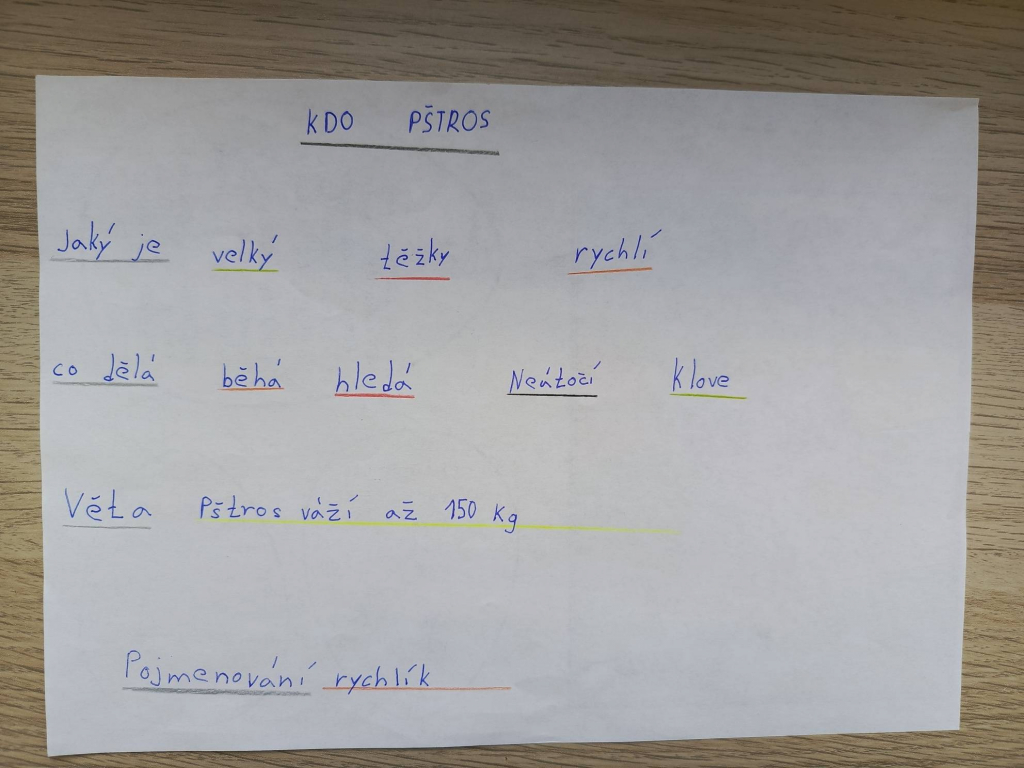 KDO PŠTROS
Jaký je velký těžky rychlí
co dělá běhá hledá Neútočí Klove
Věta Pštros váží až 150 Kg
Pojmenování rychlík